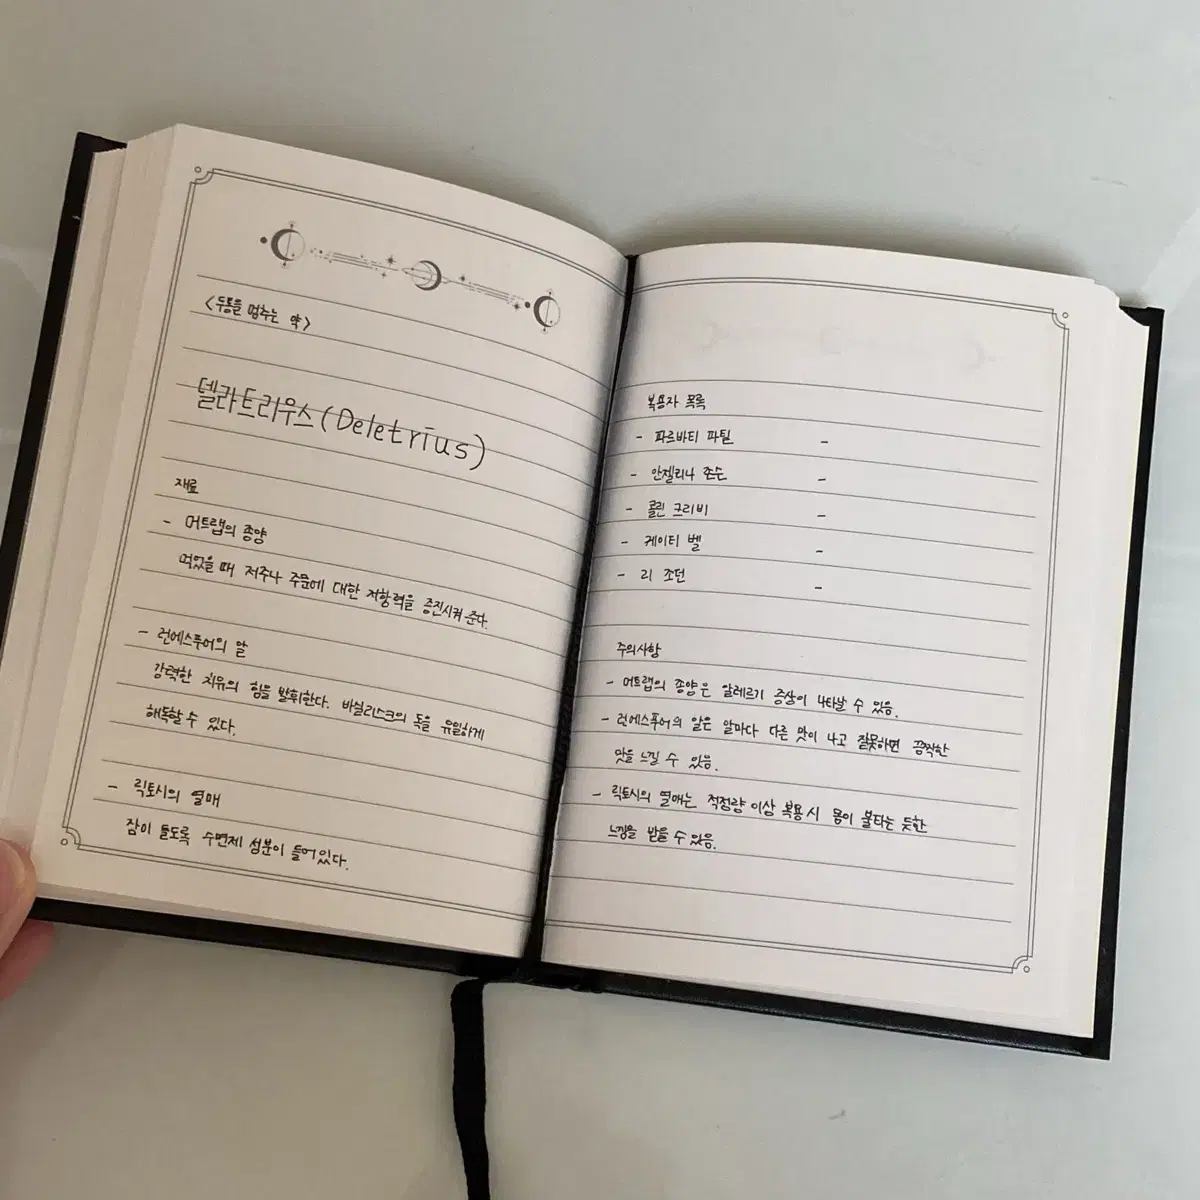 <두통을 멈추는 약>
델라트리우스(Deletrius)
재료
- 머트랩의 종양
먹었을 때 저주나 주문에 대한 저항력을 증진시켜 준다.
- 런에스푸어의 알
강력한 치유의 힘을 발휘한다. 바실리스크의 독을 유일하게
해독할 수 있다.
- 릭토시의 열매
잠이 들도록 수면제 성분이 들어있다.
복용자 목록
- 파르바티 파틸 -
- 안젤리나 존슨 -
- 콜린 크리비 -
- 케이티 벨 -
- 리 조던 -
주의사항
- 머트랩의 종양은 알레르기 증상이 나타날 수 있음.
- 런에스푸어의 알은 알마다 다른 맛이 나고 잘못하면 끔찍한
맛을 느낄 수 있음.
- 릭토시의 열매는 적정량 이상 복용 시 몸이 불타는 듯한
느낌을 받을 수 있음.